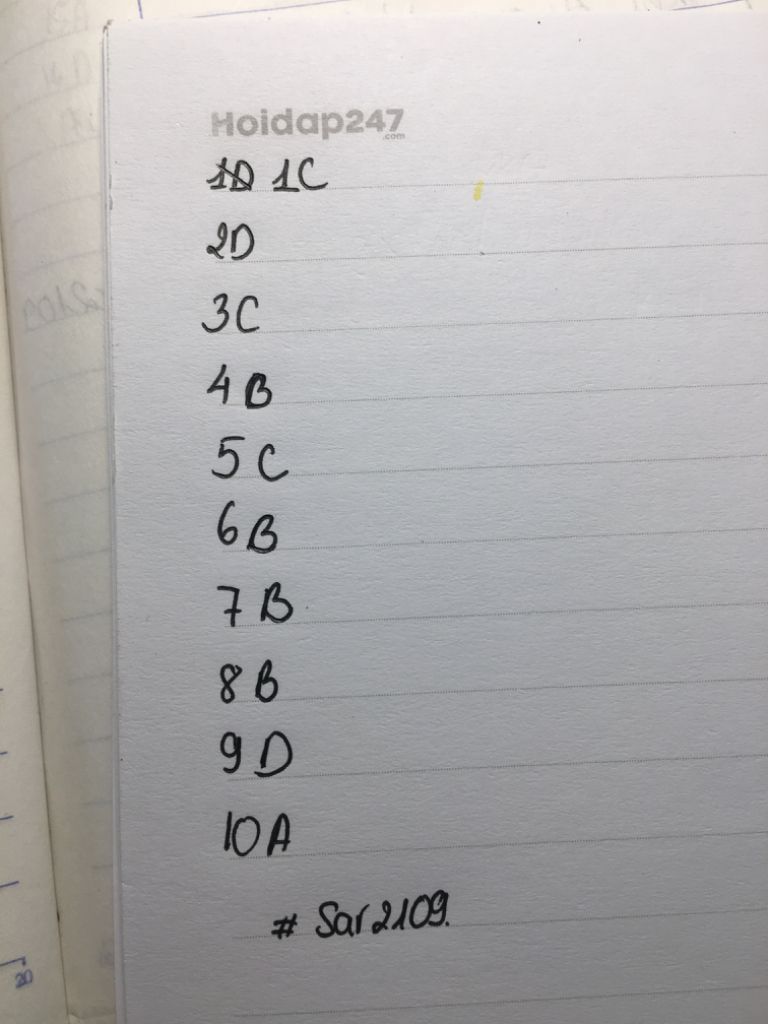 Hoidap247
.com
1C
2D
3C
4B
5C
6B
7B
8B
9D
10A
# Sar2109.